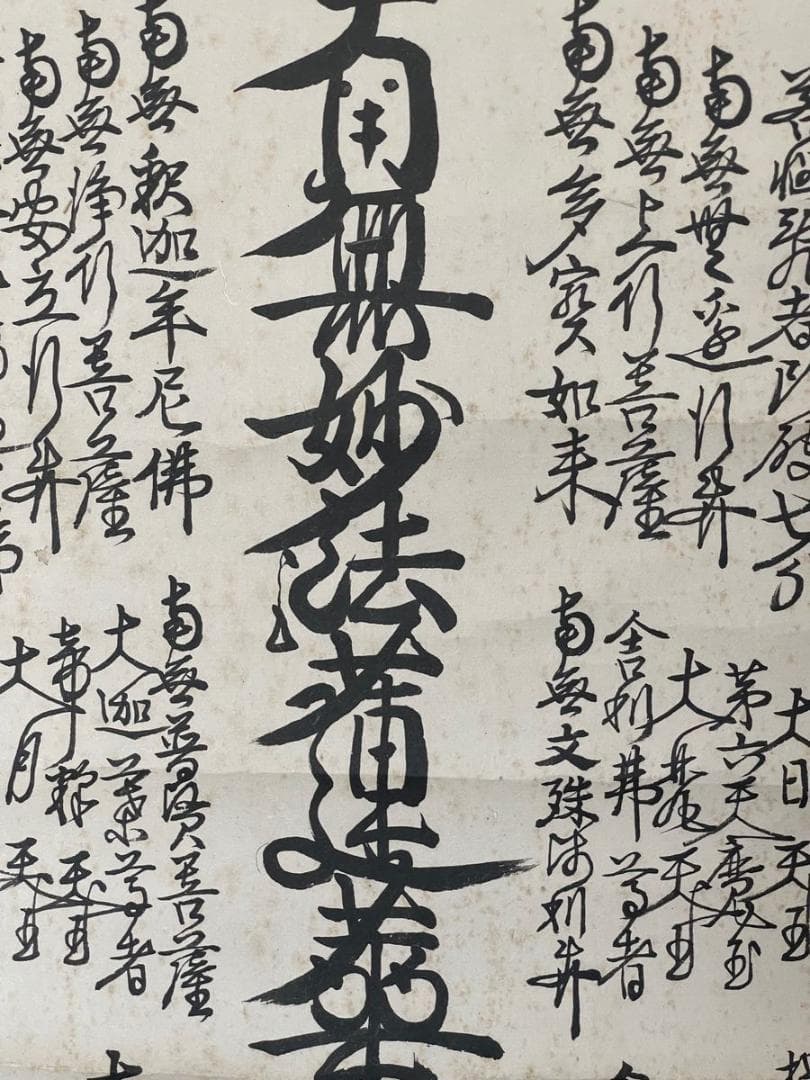 若悩乱者頭破七分
南無無邊行菩薩
南無上行菩薩
南無多寳如来
南無妙法蓮華
南無釈迦牟尼佛
南無浄行菩薩
南無安立行菩薩
大日天王
第六天魔王
大梵天王
舎利弗尊者
南無文殊師利菩薩
南無普賢菩薩
大迦葉尊者
帝釈天王
大月天王